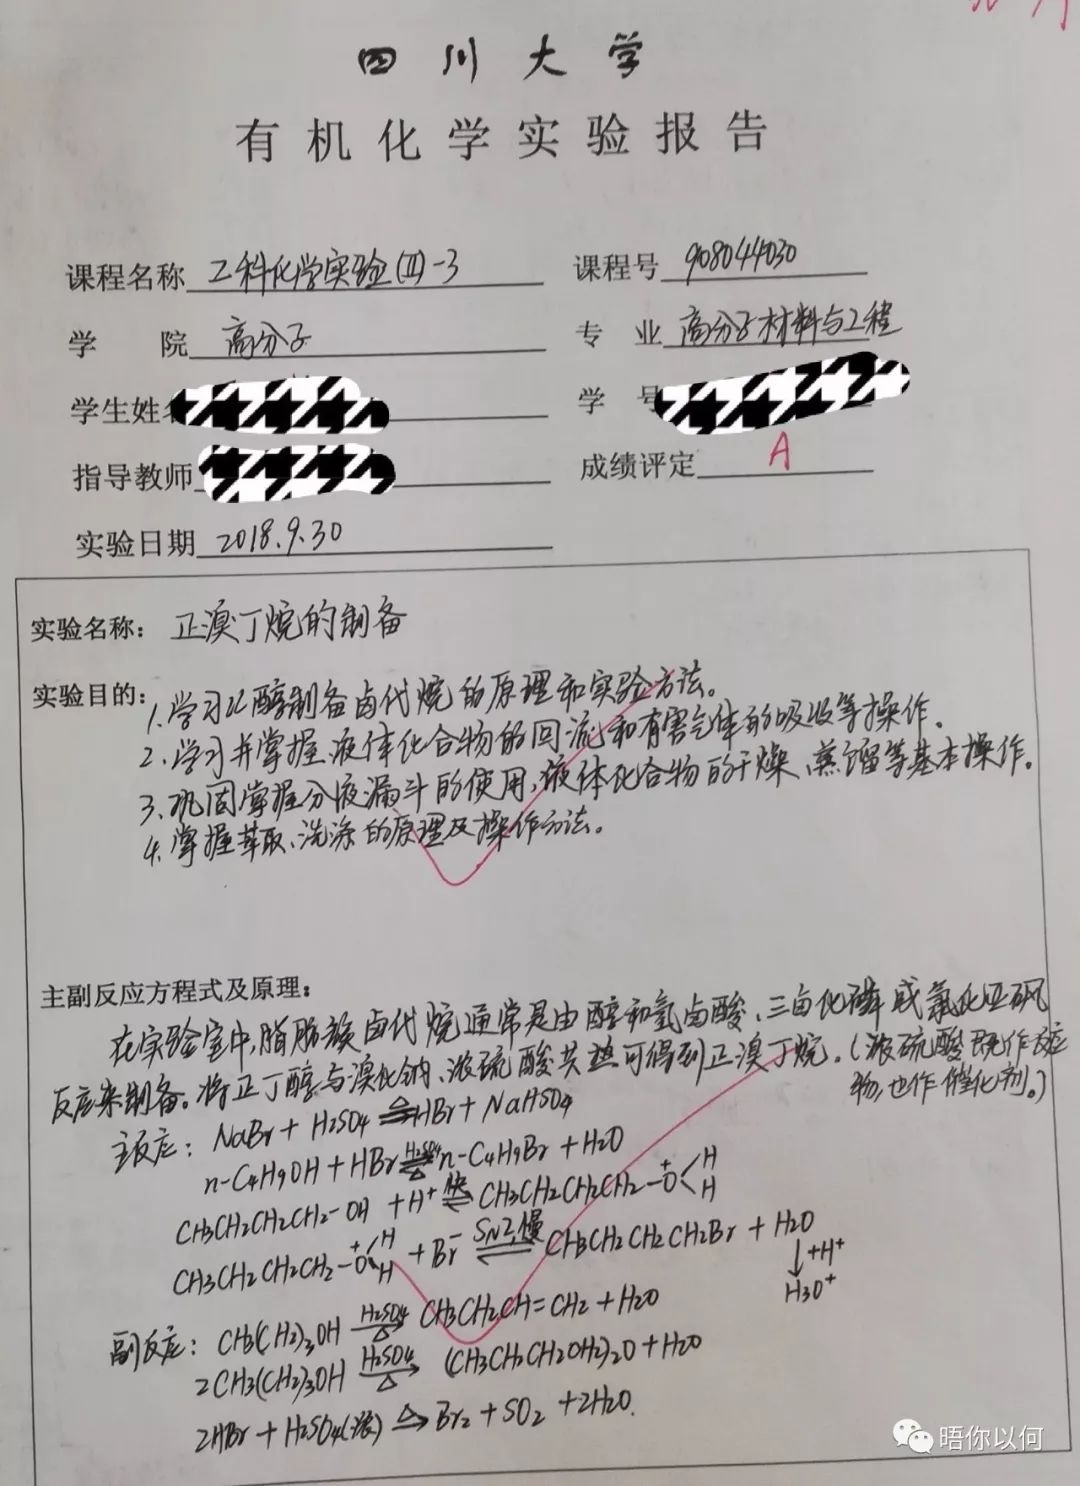 四川大学
有机化学实验报告
课程名称 工科化学实验(Ⅱ)-3 课程号 908044030
学 院 高分子 专 业 高分子材料与工程
学生姓名 学 号
指导教师 成绩评定 A
实验日期 2018.9.30
实验名称: 正溴丁烷的制备
实验目的: 1. 学习以醇制备卤代烷的原理和实验方法。
2. 学习并掌握液体化合物的回流和有害气体的吸收等操作。
3. 巩固掌握分液漏斗的使用,液体化合物的干燥、蒸馏等基本操作。
4. 掌握萃取、洗涤的原理及操作方法。
主副反应方程式及原理:
在实验室中,脂肪族卤代烷通常是由醇和氢卤酸、三卤化磷或氯化亚砜
反应来制备。将正丁醇与溴化钠、浓硫酸共热可得到正溴丁烷。(浓硫酸既作反应
物,也作催化剂。)
主反应: NaBr + H2SO4 ⇌△ HBr + NaHSO4
n-C4H9OH + HBr ⇌H2SO4△ n-C4H9Br + H2O
CH3CH2CH2CH2-OH + H+ ⇌快 CH3CH2CH2CH2-O+<H H
CH3CH2CH2CH2-O+<H H + Br- ⇌SN2,慢 CH3CH2CH2CH2Br + H2O
↓+H+
H3O+
副反应: CH3(CH2)3OH H2SO4→△ CH3CH2CH=CH2 + H2O
2CH3(CH2)3OH H2SO4→△ (CH3CH2CH2CH2)2O + H2O
2HBr + H2SO4(浓) △→ Br2 + SO2 + 2H2O.
晤你以何